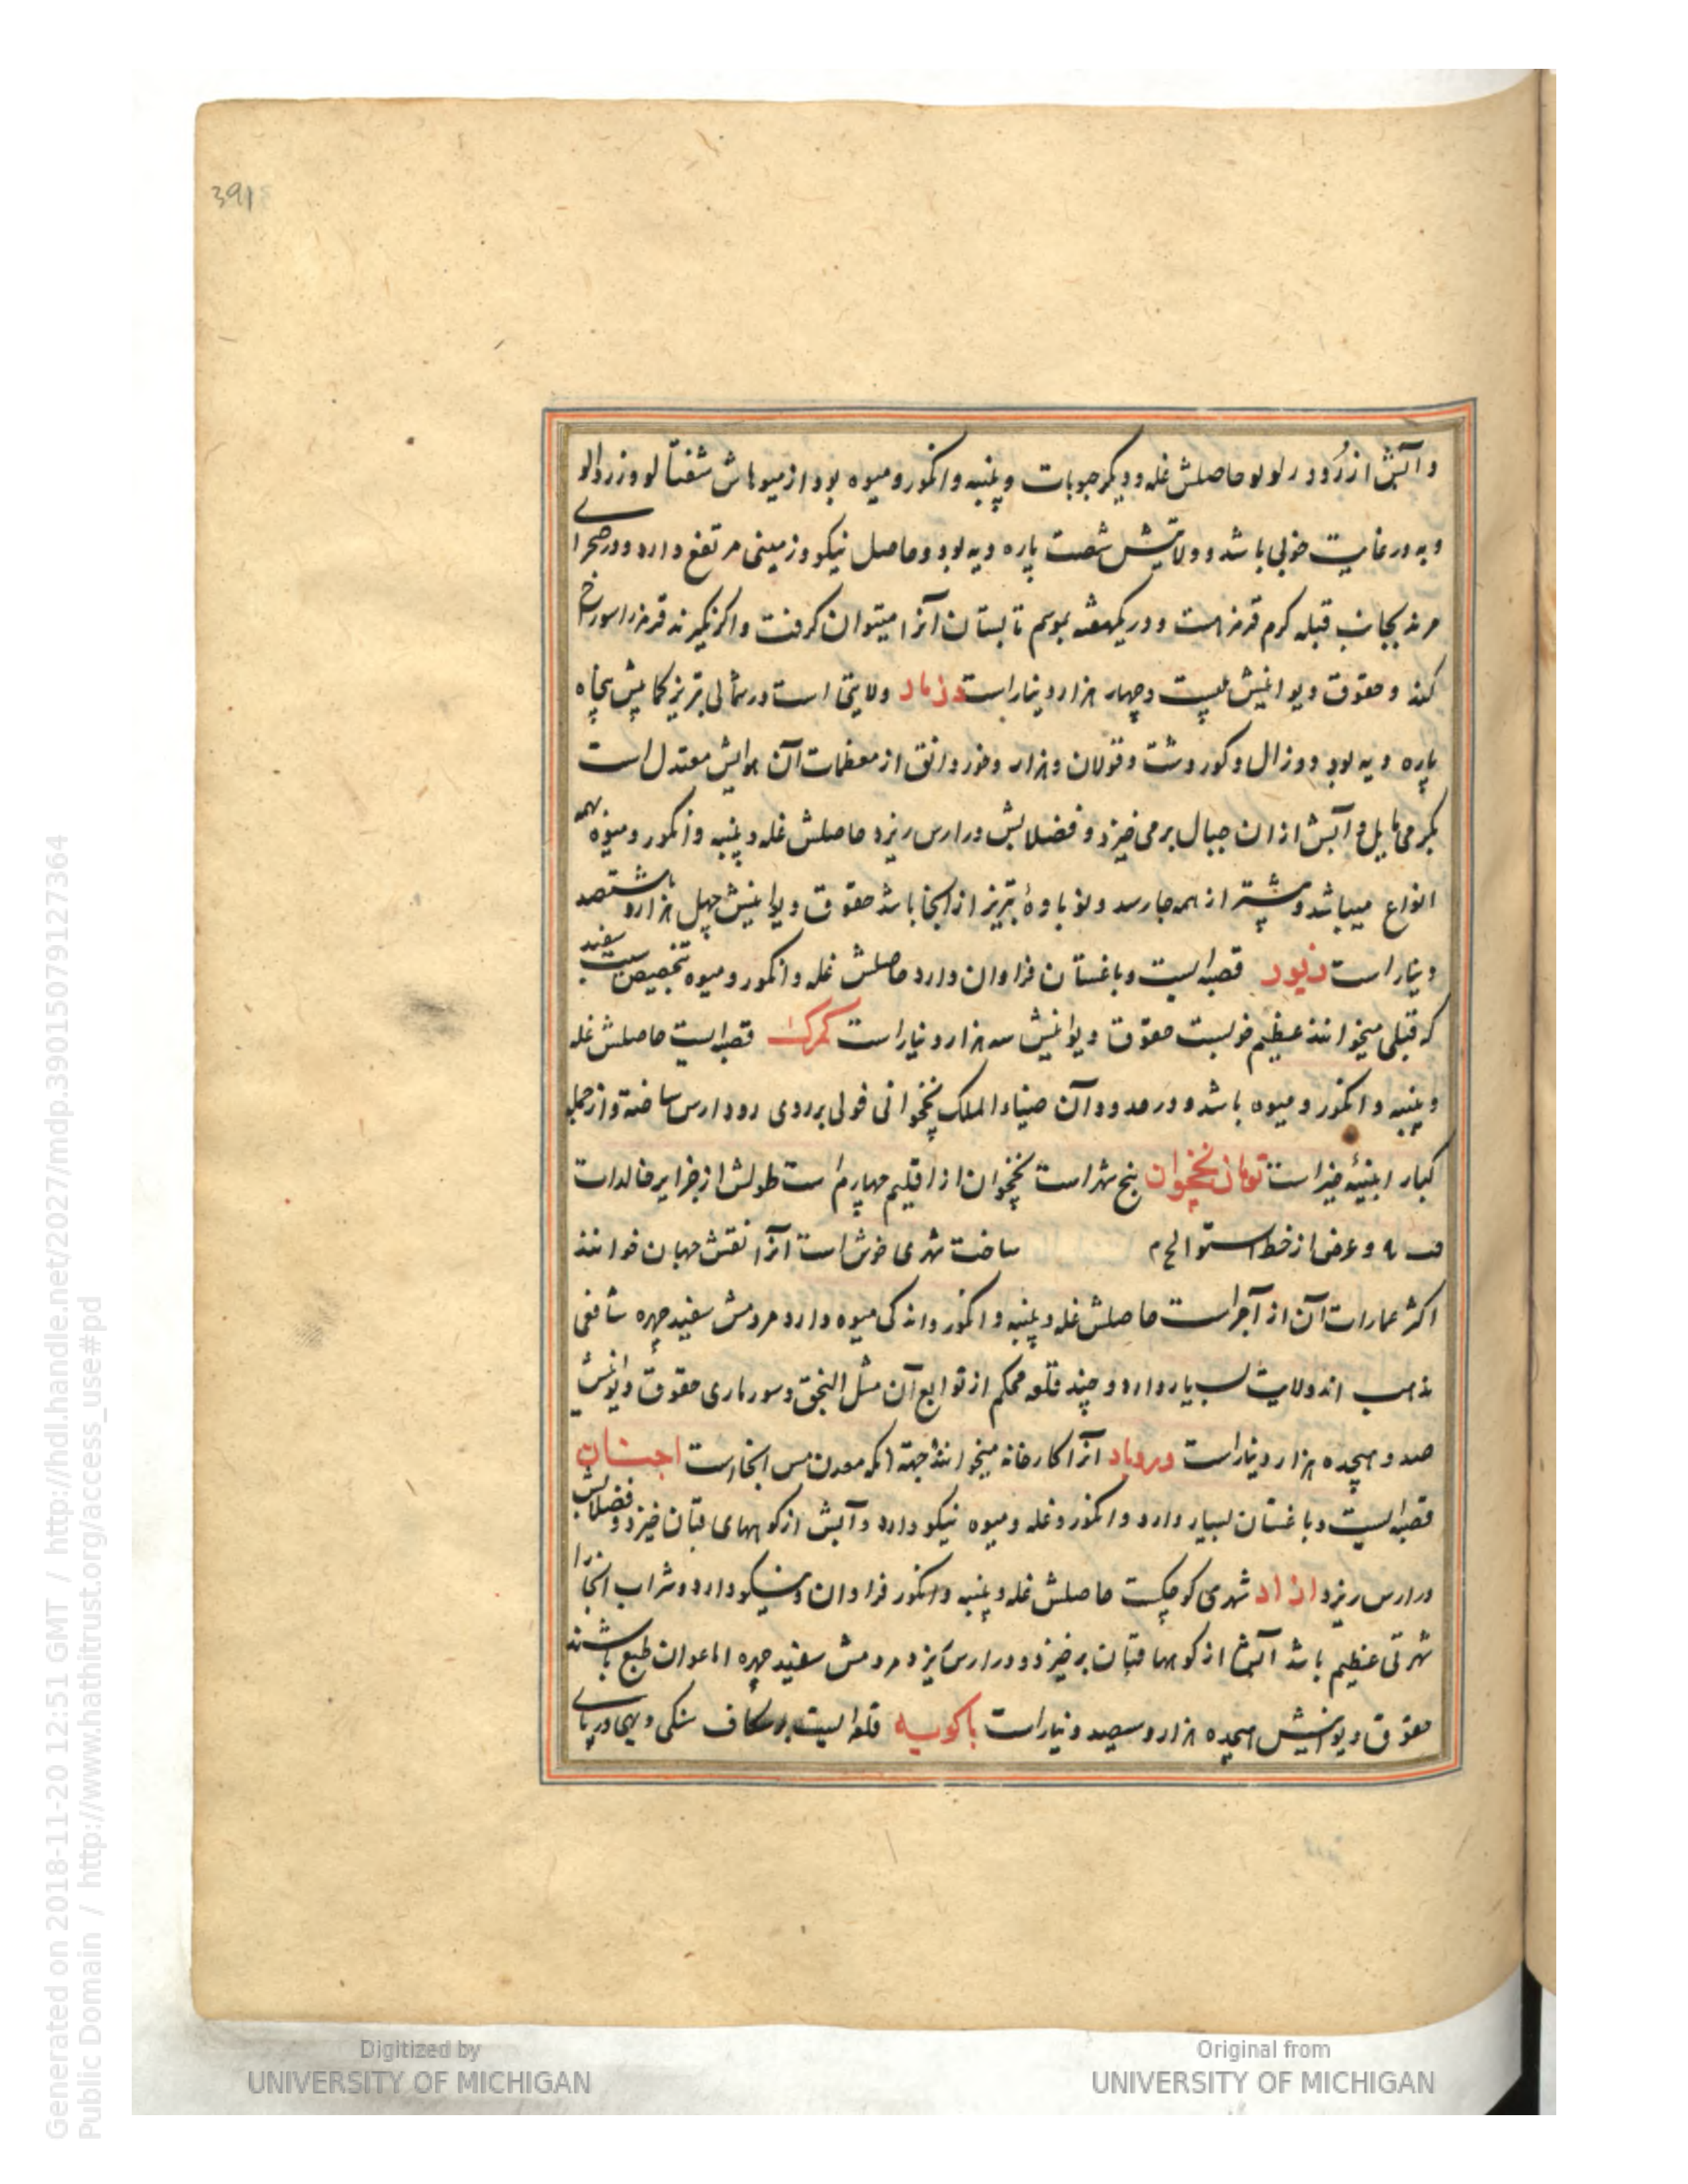 3918
و آبش از رود زلولو حاصلش غله و دیکر حبوبات و پنبه و انکور و میوه بود از میوهاش شفتالو و زردالو
و به در غایت خوبی باشد و ولایتش شصت پاره دیه بود و حاصل نیکو و زمینی مرتفع دارد و در صحرای
مرند بجانب قبله کرم قرمز است و در یکهفته بموسم تابستان آنرا میتوان کرفت و اکر نکیرند قرمز را سوراخ
کند و حقوق دیوانیش بیست و چهار هزار دینار است دزمار ولایتی است در شمالی تبریز کما بیش پنجاه
پاره دیه بود دوزال و کوردشت و قولان و هزار و خوزوانق از معظمات آن هوایش معتدل است
بکرمی مایل و آبش از ان جبال برمی خیزد و فضلابش در ارس ریزد حاصلش غله و پنبه و انکور و میوه بهمه
انواع میباشد و پیشتر از همه جا رسد و نوباوهٔ تبریز از انجا باشد حقوق دیوانیش چهل هزار و هشتصد
دینار است زنوز قصبه ایست و باغستان فراوان دارد حاصلش غله و انکور و میوه بتخصیص سیب سفید
که قبلی میخوانند عظیم خوبست حقوق دیوانیش سه هزار دینار است کرکر قصبه ایست حاصلش غله
و پنبه و انکور و میوه باشد و در حدود آن ضیاء الملک نخجوانی قولی بر روی رود ارس ساخته و از جمله
کبار ابنیهٔ خیر است تومان نخجوان پنج شهر است نخجوان از اقلیم چهارم است طولش از جزایر خالدات
ف ۹ و عرض از خط استوا لح م
ساخت شهری خوش است آنرا نقش جهان خوانند
اکثر عمارات آن از آجر است حاصلش غله و پنبه و انکور و اندکی میوه دارد مردمش سفید چهره شافعی
مذهب اند ولایت بسیار دارد و چند قلعه محکم از توابع آن مثل النجق و سورماری حقوق دیوانیش
صد و هیجده هزار دینار است دردباد آنرا کارخانه میخوانند جهة آنکه معدن مس انجاست اجنان
قصبه ایست و باغستان بسیار دارد و انکور و غله و میوه نیکو دارد و آبش از کوههای قبان خیزد و فضلابش
در ارس ریزد ازاد شهری کوچکست حاصلش غله و پنبه و انکور فراوان و نیکو دارد و شراب انجا را
شهرتی عظیم باشد آبش از کوهها قبان برخیزد و در ارس ریزد مردمش سفید چهره اما عوان طبع باشند
حقوق دیوانیش هیجده هزار و سیصد دینار است باکویه قلعه ایست بر شکاف سنکی دیهی در پای
Digitized by
UNIVERSITY OF MICHIGAN
Original from
UNIVERSITY OF MICHIGAN
Generated on 2018-11-20 12:51 GMT / http://hdl.handle.net/2027/mdp.39015079127364
Public Domain / http://www.hathitrust.org/access_use#pd